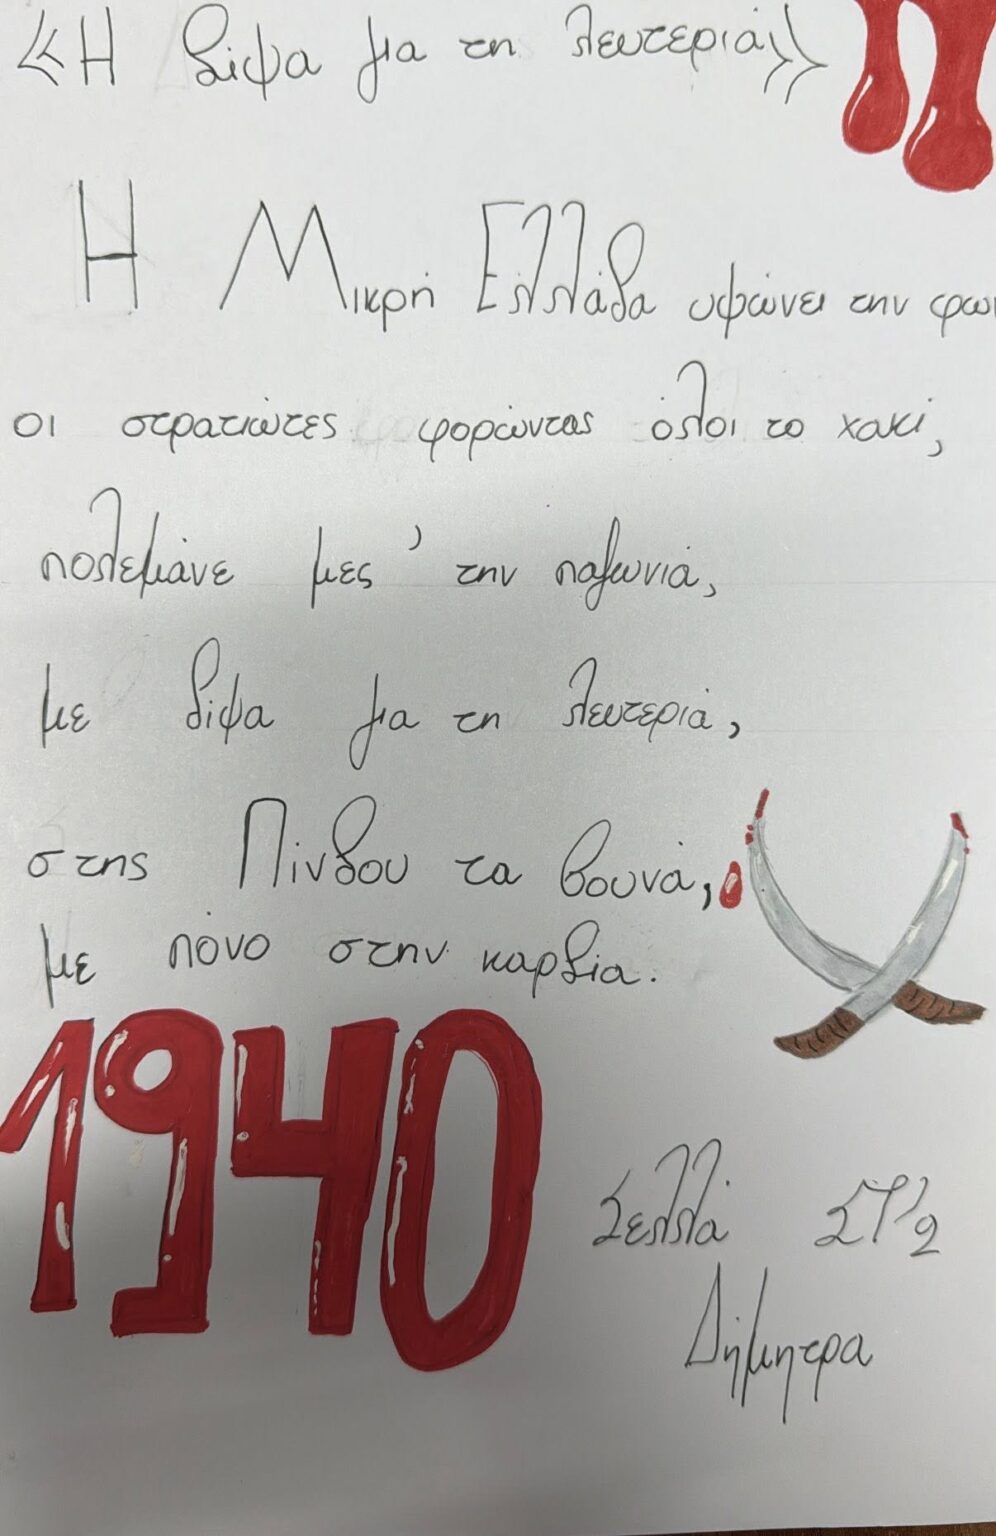 «Η δίψα για τη λευτεριά»
Η Μικρή Ελλάδα υψώνει την
οι στρατιώτες φορώντας όλοι το χακί,
πολεμάνε μες ’ την παγωνιά,
με δίψα για τη λευτεριά,
στης Πίνδου τα βουνά,
με πόνο στην καρδιά.
1940
Σελλά ΣΤ’2
Δήμητρα